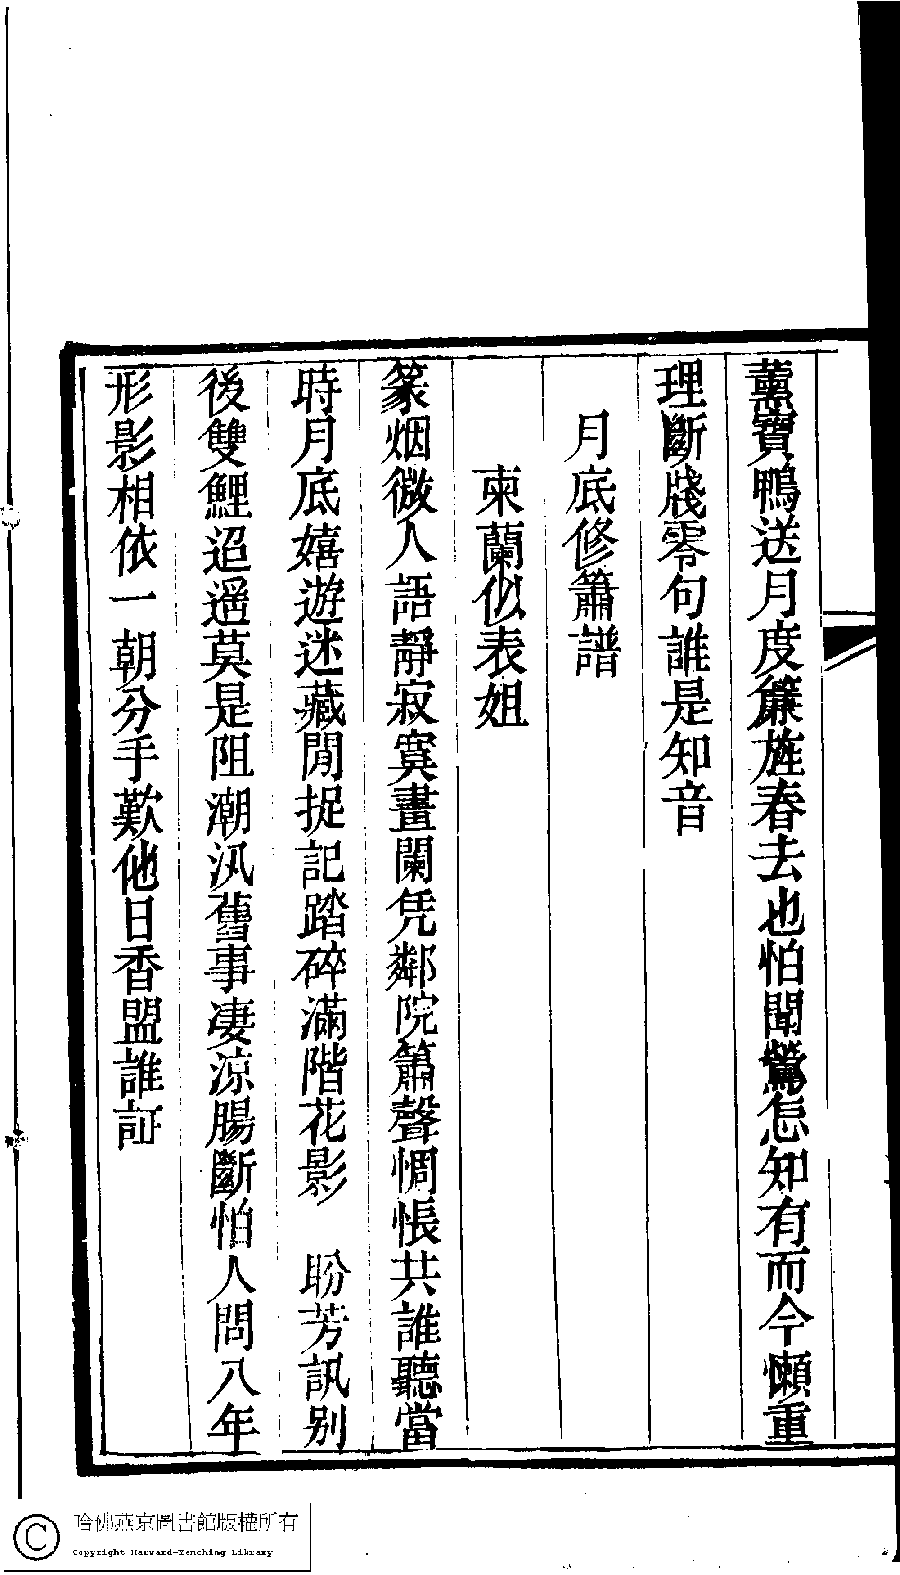 薰寶鴨送月度簾旌春去也怕聞鶯怎知有而今懶重
理斷牋零句誰是知音
月底修簫譜
柬蘭似表姐
篆烟微人語靜寂寞畫闌凭鄰院簫聲惆悵共誰聽當
時月底嬉遊迷藏閒捉記踏碎滿階花影　盼芳訊別
後雙鯉迢遥莫是阻潮汛舊事凄涼腸斷怕人問八年
形影相依一朝分手歎他日香盟誰証
哈佛燕京圖書館版權所有
Copyright Harvard-Yenching Library